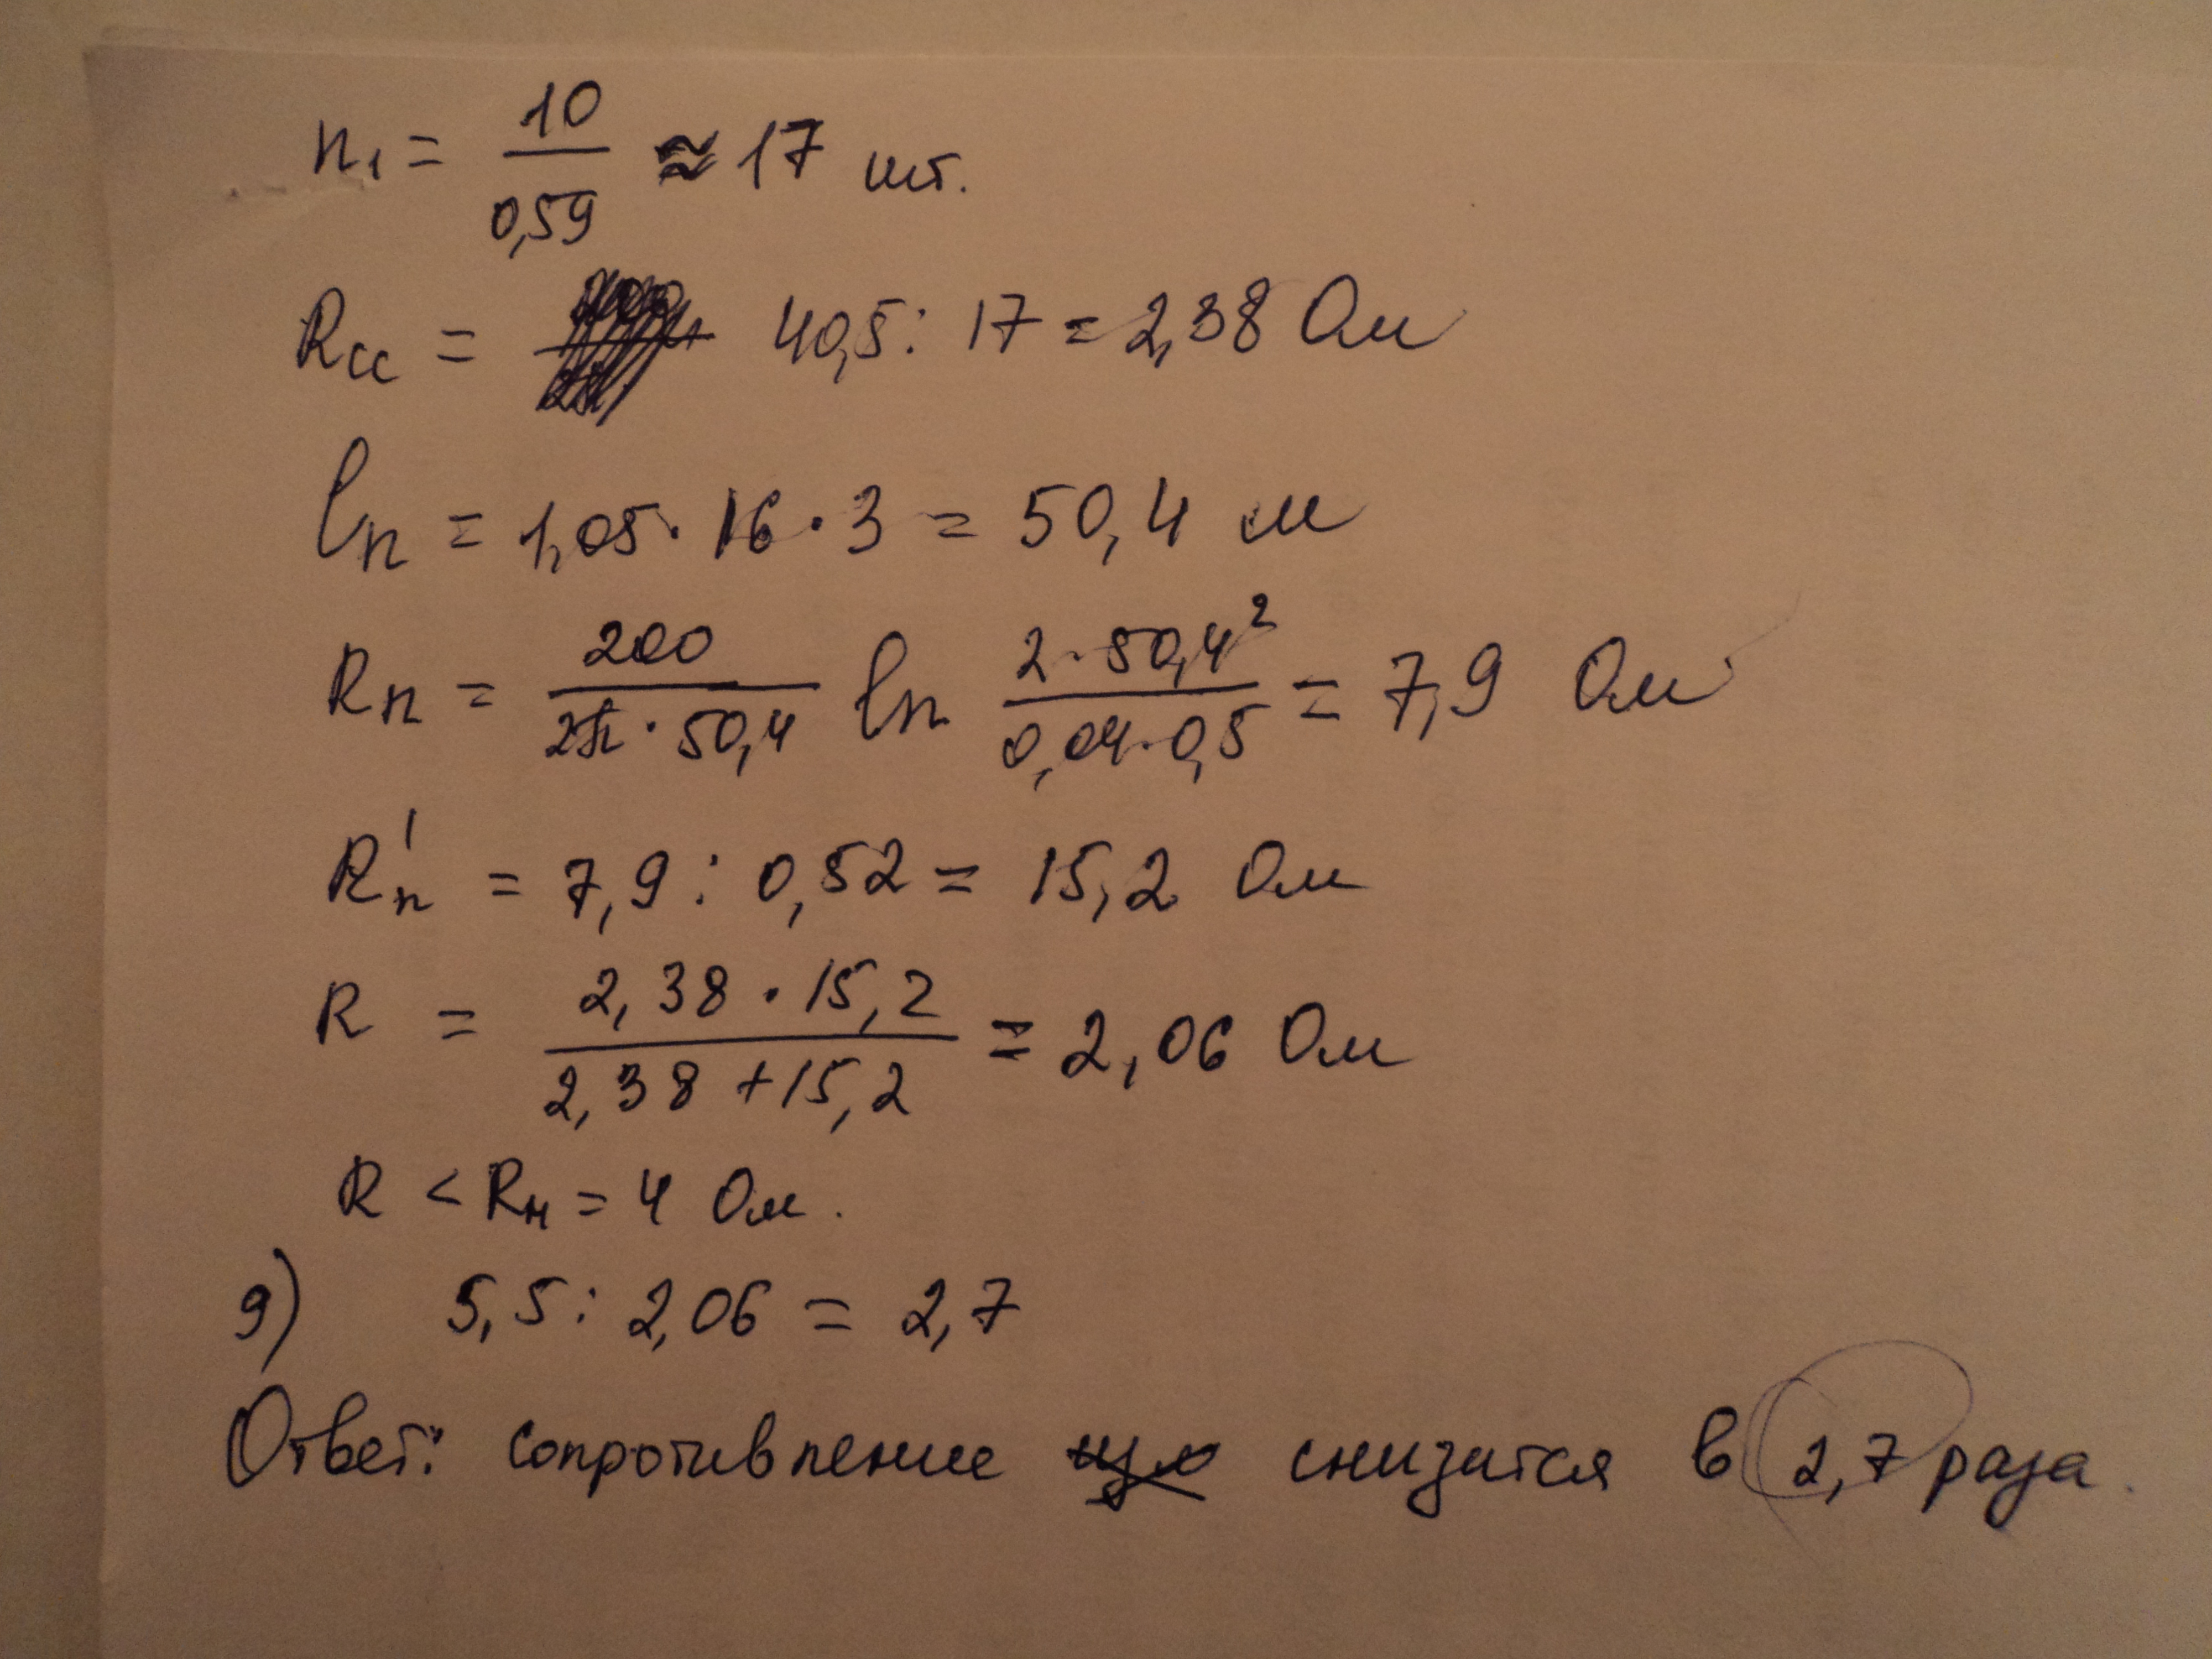 n₁ = 10/0,59 ≈ 17 шт.
Rсс = 40,5 : 17 = 2,38 Ом
lп = 1,05 · 16 · 3 = 50,4 м
Rп = 200/(2π · 50,4) ln (2 · 50,4²)/(0,04 · 0,5) = 7,9 Ом
R'п = 7,9 : 0,52 = 15,2 Ом
R = (2,38 · 15,2)/(2,38 + 15,2) = 2,06 Ом
R < Rн = 4 Ом.
9) 5,5 : 2,06 = 2,7
Ответ: сопротивление снизится в 2,7 раза.